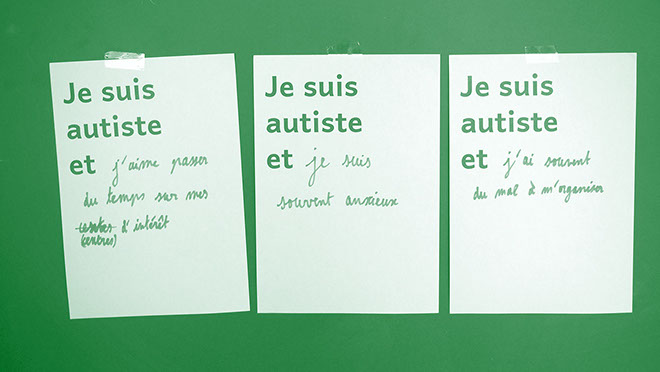 Je suis
autiste
et j'aime passer
du temps sur mes
centres d'intérêt
(centres)
Je suis
autiste
et je suis
souvent anxieux
Je suis
autiste
et j'ai souvent
du mal à m'organiser